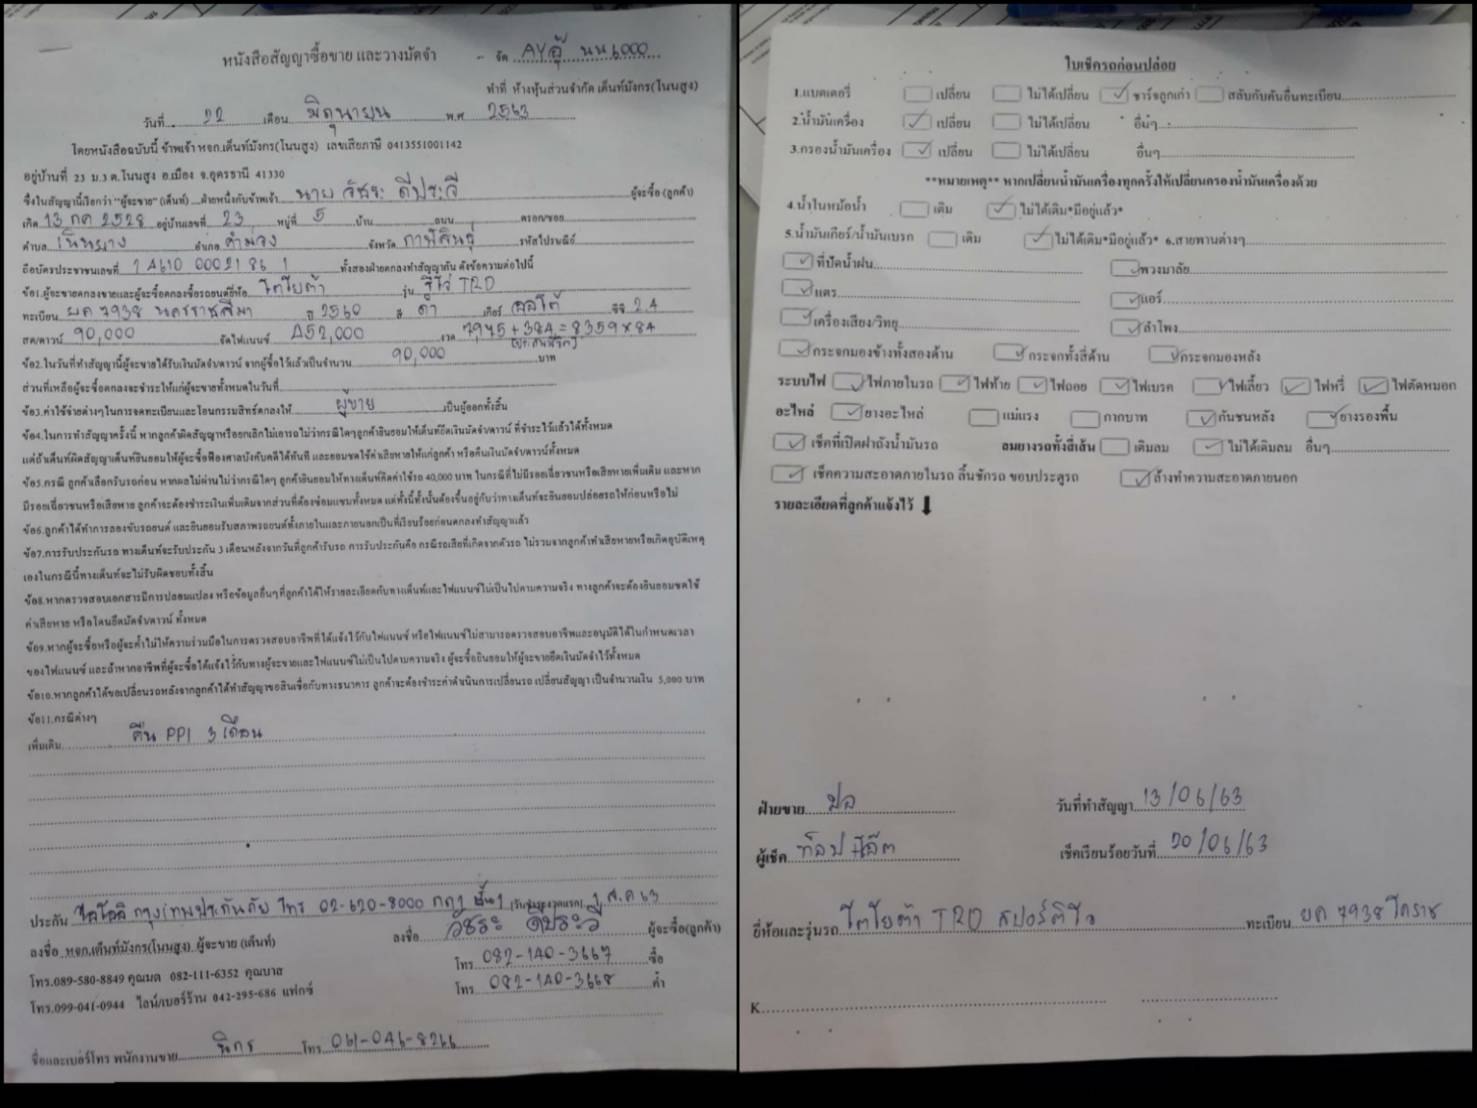 หนังสือสัญญาซื้อขาย และวางมัดจำ - จัด AY
ทำที่ ห้างหุ้นส่วนจำกัด เต็นท์มังกร(โนนสูง)
วันที่ 22 เดือน มิถุนายน พ.ศ 2563
โดยหนังสือฉบับนี้ ข้าพเจ้า หจก.เต็นท์มังกร(โนนสูง) เลขเสียภาษี 0413551001142
อยู่บ้านที่ 23 ม.3 ต.โนนสูง อ.เมือง จ.อุดรธานี 41330
ซึ่งในสัญญานี้เรียกว่า "ผู้จะขาย" (เต็นท์) ฝ่ายหนึ่งกับข้าพเจ้า นาย วัชระ ดีประวี ผู้จะซื้อ (ลูกค้า)
เกิด 13 กค 2528 อยู่บ้านเลขที่ 23 หมู่ที่ 5 บ้าน ถนน ตรอก/ซอย
ตำบล เนินยาง อำเภอ คำม่วง จังหวัด กาฬสินธุ์ รหัสไปรษณีย์
ถือบัตรประชาชนเลขที่ 1 4610 00021 86 1 ทั้งสองฝ่ายตกลงทำสัญญากัน ดังข้อความต่อไปนี้
ข้อ1.ผู้จะขายตกลงขายและผู้จะซื้อตกลงซื้อรถยนต์ยี่ห้อ โตโยต้า รุ่น รีโว่ TRD
ทะเบียน ผค 7938 นครราชสีมา ปี 2560 สี ดำ เกียร์ ออโต้ ซีซี 2.4
สด/ดาวน์ 90,000 จัดไฟแนนซ์ 452,000 งวด 7975+384=8359x84
ข้อ2.ในวันที่ทำสัญญานี้ผู้จะขายได้รับเงินมัดจำ/ดาวน์ จากผู้ซื้อไว้แล้วเป็นจำนวน 90,000 บาท
ส่วนที่เหลือผู้จะซื้อตกลงจะชำระให้แก่ผู้จะขายทั้งหมดในวันที่
ข้อ3.ค่าใช้จ่ายต่างๆในการจดทะเบียนและโอนกรรมสิทธิ์ตกลงให้ ผู้ขาย เป็นผู้ออกทั้งสิ้น
ข้อ4.ในการทำสัญญาครั้งนี้ หากลูกค้าผิดสัญญาหรือยกเลิกไม่เอารถ ไม่ว่ากรณีใดๆลูกค้ายินยอมให้เต็นท์ยึดเงินมัดจำ/ดาวน์ ที่ชำระไว้แล้วได้ทั้งหมด
แต่ถ้าเต็นท์ผิดสัญญาเต็นท์ยินยอมให้ผู้จะซื้อฟ้องศาลบังคับคดีได้ทันที และยอมชดใช้ค่าเสียหายให้แก่ลูกค้า หรือคืนเงินมัดจำ/ดาวน์ทั้งหมด
ข้อ5.กรณี ลูกค้าเลือกรับรถก่อน หากผลไม่ผ่านไม่ว่ากรณีใดๆ ลูกค้ายินยอมให้ทางเต็นท์คิดค่าใช้รถ 40,000 บาท ในกรณีที่ไม่มีรอยเฉี่ยวชนหรือเสียหายเพิ่มเติม และหาก
มีรอยเฉี่ยวชนหรือเสียหาย ลูกค้าจะต้องชำระเงินเพิ่มเติมจากส่วนที่ต้องซ่อมแซมทั้งหมด แต่ทั้งนี้ทั้งนั้นต้องขึ้นอยู่กับว่าทางเต็นท์จะยินยอมปล่อยรถให้ก่อนหรือไม่
ข้อ6.ลูกค้าได้ทำการลองขับรถยนต์ และยินยอมรับสภาพรถยนต์ทั้งภายในและภายนอกเป็นที่เรียบร้อยก่อนตกลงทำสัญญาแล้ว
ข้อ7.การรับประกันรถ ทางเต็นท์จะรับประกัน 3 เดือนหลังจากวันที่ลูกค้ารับรถ การรับประกันคือ กรณีรถเสียที่เกิดจากตัวรถ ไม่รวมจากลูกค้าทำเสียหายหรือเกิดอุบัติเหตุ
เองในกรณีนี้ทางเต็นท์จะไม่รับผิดชอบทั้งสิ้น
ข้อ8.หากตรวจสอบเอกสารมีการปลอมแปลง หรือข้อมูลอื่นๆที่ลูกค้าได้ให้รายละเอียดกับทางเต็นท์และไฟแนนซ์ไม่เป็นไปตามความจริง ทางลูกค้าจะต้องยินยอมชดใช้
ค่าเสียหาย หรือโดนยึดมัดจำ/ดาวน์ ทั้งหมด
ข้อ9.หากผู้จะซื้อหรือผู้จะค้ำไม่ให้ความร่วมมือในการตรวจสอบอาชีพที่ได้แจ้งไว้กับไฟแนนซ์ หรือไฟแนนซ์ไม่สามารถตรวจสอบอาชีพและอนุมัติได้ในกำหนดเวลา
ของไฟแนนซ์ และถ้าหากอาชีพที่ผู้จะซื้อได้แจ้งไว้กับทางผู้จะขายและไฟแนนซ์ไม่เป็นไปตามความจริง ผู้จะซื้อยินยอมให้ผู้จะขายยึดเงินมัดจำไว้ทั้งหมด
ข้อ10.หากลูกค้าได้ขอเปลี่ยนรถหลังจากลูกค้าได้ทำสัญญาขอสินเชื่อกับทางธนาคาร ลูกค้าจะต้องชำระค่าดำเนินการเปลี่ยนรถ เปลี่ยนสัญญา เป็นจำนวนเงิน 5,000 บาท
ข้อ11.กรณีต่างๆ
เพิ่มเติม คืน PPI 3 เดือน
ประกัน กรุงเทพประกันภัย โทร 02-620-8000 กด1 (วันส่งงวดแรก) 1 ส.ค 63
ลงชื่อ หจก.เต็นท์มังกร(โนนสูง) ผู้จะขาย (เต็นท์) ลงชื่อ วัชระ ดีประวี ผู้จะซื้อ(ลูกค้า)
โทร.089-580-8849 คุณมด 082-111-6352 คุณบาส โทร 082-140-3667 ซื้อ
โทร.099-041-0944 ไลน์/เบอร์ร้าน 042-295-686 แฟกซ์ โทร 082-140-3668 ค้ำ
ชื่อและเบอร์โทร พนักงานขาย โทร 061-046-8266
ใบเช็ครถก่อนปล่อย
1.แบตเตอรี่ เปลี่ยน ไม่ได้เปลี่ยน ชาร์จลูกเก่า สลับกับคันอื่นทะเบียน
2.น้ำมันเครื่อง เปลี่ยน ไม่ได้เปลี่ยน อื่นๆ
3.กรองน้ำมันเครื่อง เปลี่ยน ไม่ได้เปลี่ยน อื่นๆ
**หมายเหตุ** หากเปลี่ยนน้ำมันเครื่องทุกครั้งให้เปลี่ยนกรองน้ำมันเครื่องด้วย
4.น้ำในหม้อน้ำ เติม ไม่ได้เติม*มีอยู่แล้ว*
5.น้ำมันเกียร์/น้ำมันเบรก เติม ไม่ได้เติม*มีอยู่แล้ว* 6.สายพานต่างๆ
ที่ปัดน้ำฝน พวงมาลัย
แตร แอร์
เครื่องเสียง/วิทยุ ลำโพง
กระจกมองข้างทั้งสองด้าน กระจกทั้งสี่ด้าน กระจกมองหลัง
ระบบไฟ ไฟภายในรถ ไฟท้าย ไฟถอย ไฟเบรค ไฟเลี้ยว ไฟหรี่ ไฟตัดหมอก
อะไหล่ ยางอะไหล่ แม่แรง กากบาท กันชนหลัง ยางรองพื้น
เช็คที่เปิดฝาถังน้ำมันรถ ลมยางรถทั้งสี่เส้น เติมลม ไม่ได้เติมลม อื่นๆ
เช็คความสะอาดภายในรถ ลิ้นชักรถ ขอบประตูรถ ล้างทำความสะอาดภายนอก
รายละเอียดที่ลูกค้าแจ้งไว้
ฝ่ายขาย วันที่ทำสัญญา 13/06/63
ผู้เช็ค เช็คเรียบร้อยวันที่ 20/06/63
ยี่ห้อและรุ่นรถ โตโยต้า TRD สปอร์ตติโว ทะเบียน ผค 7938 โคราช
K